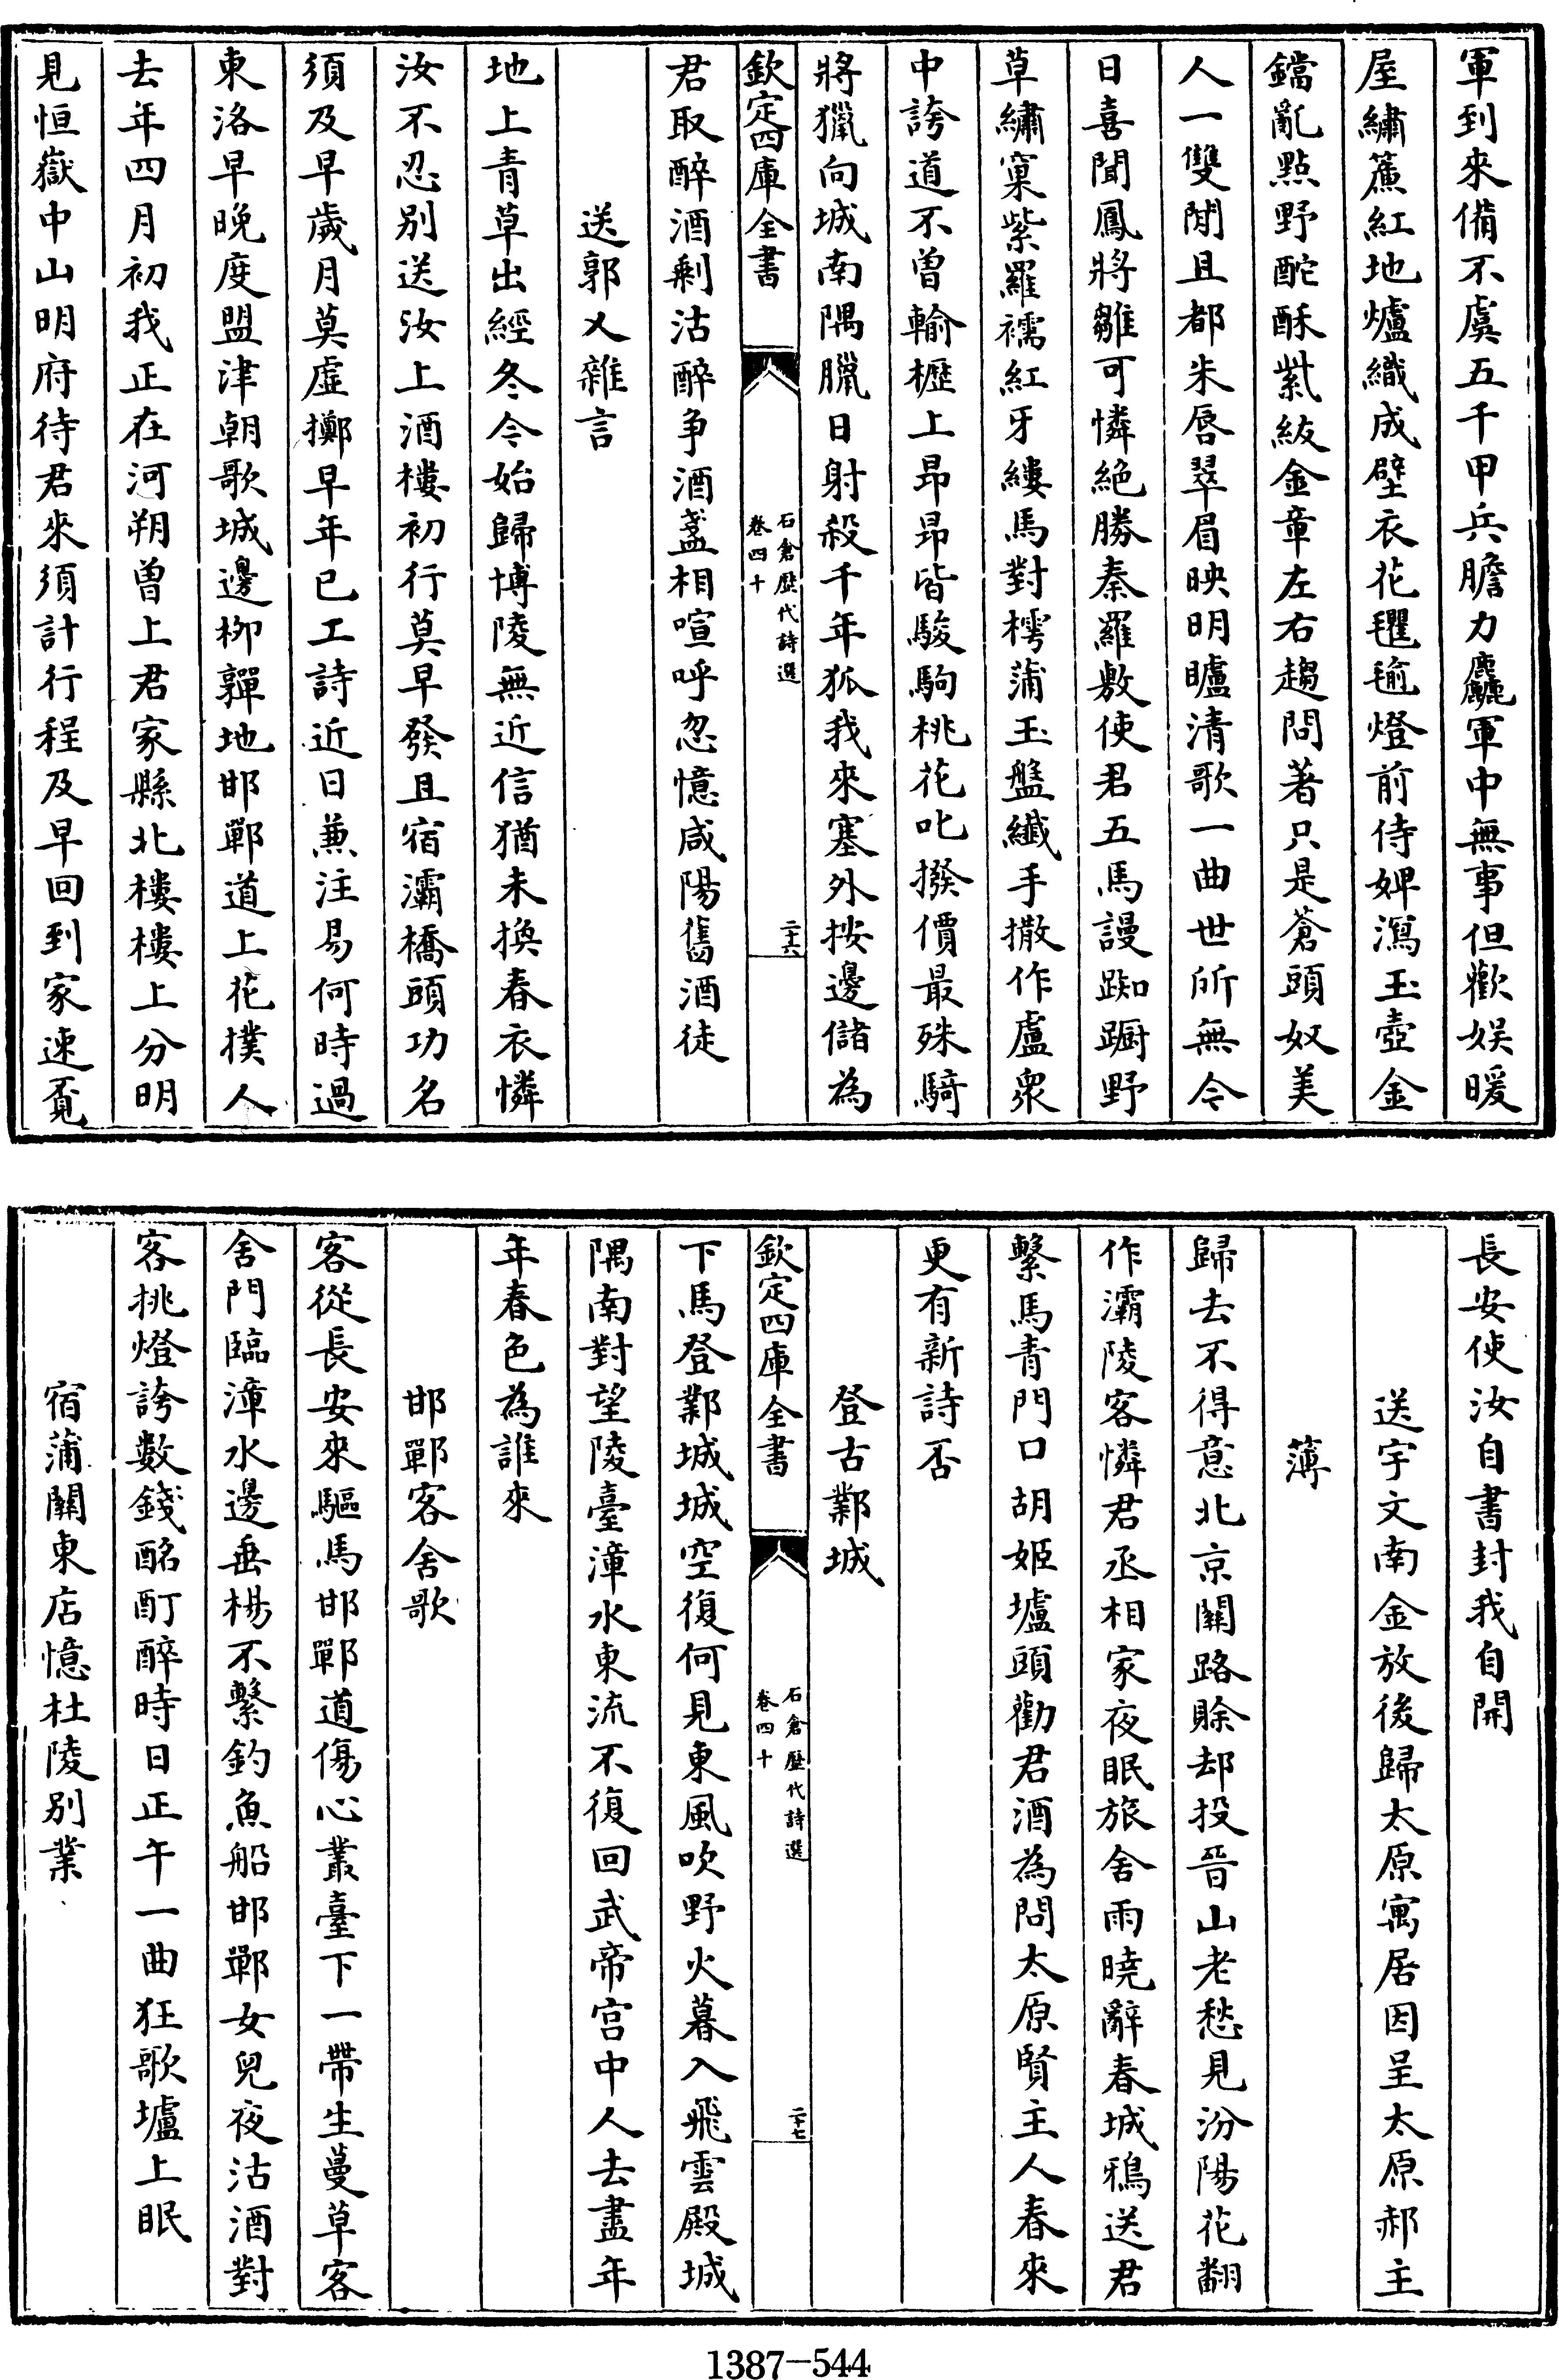 軍到來備不虞五千甲兵膽力麤軍中無事但歡娛暖
屋繡簾紅地爐織成壁衣花氍毹燈前侍婢瀉玉壺金
鐺亂點野酡酥紫紱金章左右趨問著只是蒼頭奴美
人一雙閒且都朱唇翠眉映明矑清歌一曲世所無今
日喜聞鳳將雛可憐絶勝秦羅敷使君五馬謾踟蹰野
草繡窠紫羅襦紅牙縷馬對樗蒲玉盤纖手撒作盧衆
中誇道不曾輸櫪上昂昂皆駿駒桃花叱撥價最殊騎
將獵向城南隅臘日射殺千年狐我來塞外按邊儲為
欽定四庫全書
石倉歷代詩選
卷四十
二十六
君取醉酒剩沽醉爭酒盞相喧呼忽憶咸陽舊酒徒
送郭乂雜言
地上青草出經冬今始歸博陵無近信猶未換春衣憐
汝不忍别送汝上酒樓初行莫早發且宿灞橋頭功名
須及早歲月莫虛擲早年已工詩近日兼注易何時過
東洛早晚度盟津朝歌城邊柳嚲地邯鄲道上花撲人
去年四月初我正在河朔曾上君家縣北樓樓上分明
見恒嶽中山明府待君來須計行程及早回到家速覔
長安使汝自書封我自開
送宇文南金放後歸太原寓居因呈太原郝主
薄
歸去不得意北京關路賒却投晉山老愁見汾陽花翻
作灞陵客憐君丞相家夜眠旅舍雨曉辭春城鴉送君
繫馬青門口胡姬壚頭勸君酒為問太原賢主人春來
更有新詩否
登古鄴城
欽定四庫全書
石倉歷代詩選
卷四十
二十七
下馬登鄴城城空復何見東風吹野火暮入飛雲殿城
隅南對望陵臺漳水東流不復回武帝宫中人去盡年
年春色為誰來
邯鄲客舍歌
客從長安來驅馬邯鄲道傷心叢臺下一帶生蔓草客
舍門臨漳水邊垂楊不繫釣魚船邯鄲女兒夜沽酒對
客挑燈誇數錢酩酊醉時日正午一曲狂歌壚上眠
宿蒲關東店憶杜陵别業
1387-544